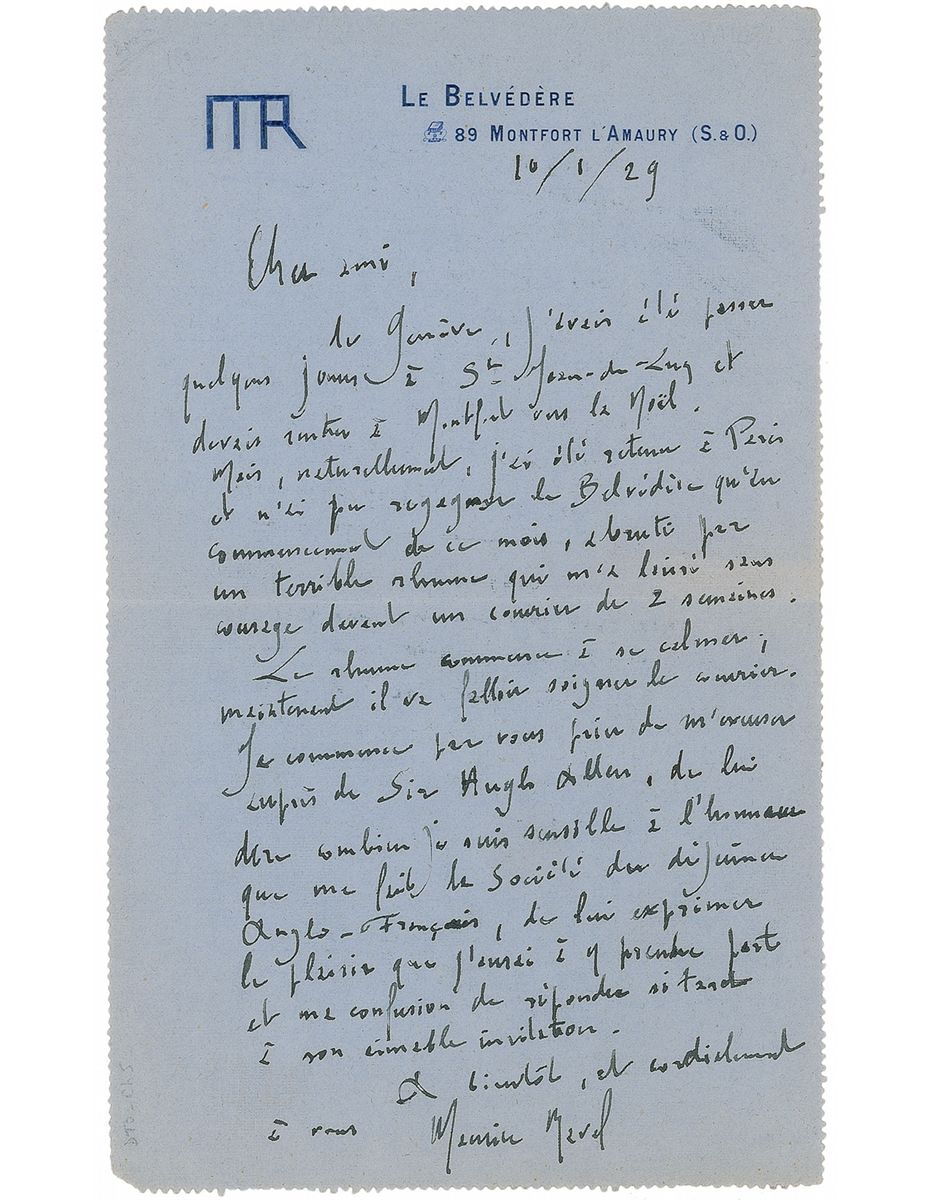 MR
LE BELVÉDÈRE
89 MONTFORT L'AMAURY (S.&O.)
10/1/29
Cher ami,
de Genève, j'avais été passer
quelques jours à St Jean-de-Luz et
devais rentrer à Montfort vers la Noël.
Mais, naturellement, j'ai été retenu à Paris
et n'ai pu regagner le Belvédère qu'au
commencement de ce mois, abruti par
un terrible rhume qui m'a laissé sans
courage devant un courrier de 2 semaines.
Le rhume commence à se calmer;
maintenant il va falloir soigner le courrier.
Je commence par vous prier de m'excuser
auprès de Sir Hugh Allen, de lui
dire combien je suis sensible à l'honneur
que me fait la Société du déjeuner
Anglo-Français, de lui exprimer
le plaisir que j'aurai à y prendre part
et ma confusion de répondre si tard
à son aimable invitation.
A bientôt, et cordialement
à vous Maurice Ravel